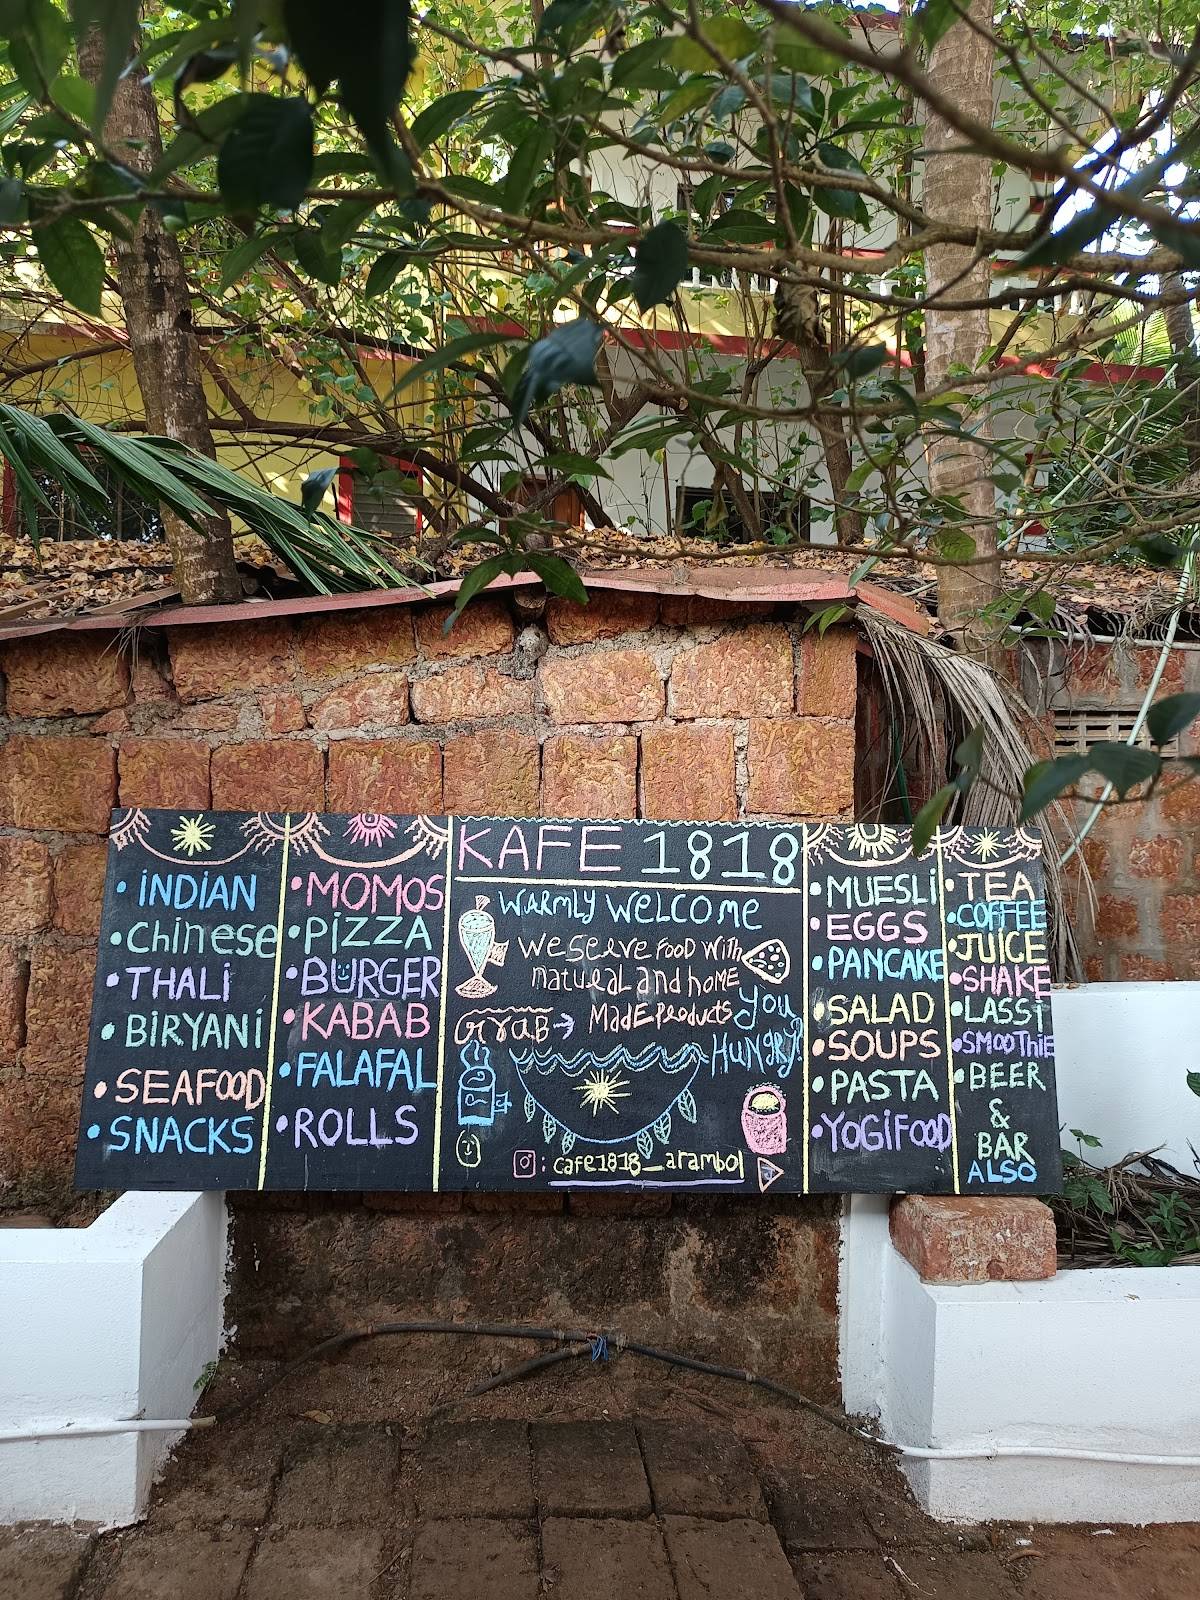 • iNDiAN
• Chinese
• THALi
• BiRYANi
• SEAFOOD
• SNACKS
• MOMOS
• PiZZA
• BURGER
• KABAB
• FALAFAL
• ROLLS
KAFE 1818
WARMLY WELCOME
We Serve FOOD With
natural and HOME
MadE Products
GRAB →
You
HUNGRY?
: cafe1818_arambol
• MUESLi
• EGGS
• PANCAKE
• SALAD
• SOUPS
• PASTA
• YOGiFOOD
• TEA
• COFFEE
• JUICE
• SHAKE
• LASSi
• SMOOThiE
• BEER
&
BAR
ALSO